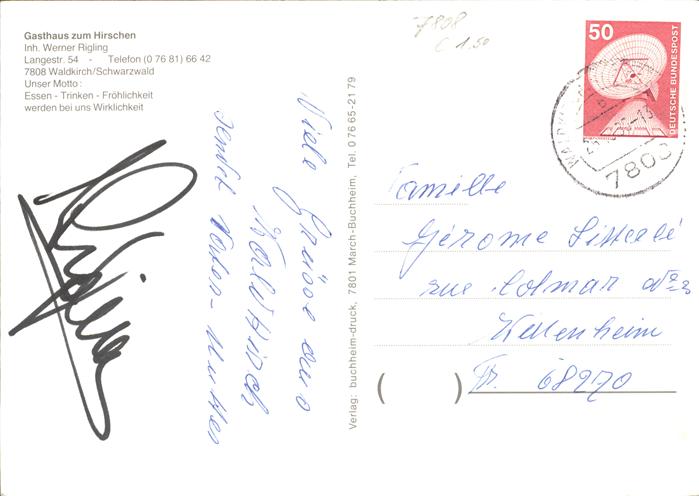 Gasthaus zum Hirschen
Inh. Werner Rigling
Langestr. 54 - Telefon (0 76 81) 66 42
7808 Waldkirch/Schwarzwald
Unser Motto:
Essen - Trinken - Fröhlichkeit
werden bei uns Wirklichkeit
7808
€ 1.50
50
DEUTSCHE BUNDESPOST
7808
Viele Grüsse aus
Waldkirch
sendet Vater - Mutter
Verlag: buchheim-druck, 7801 March-Buchheim, Tel. 0 76 65-21 79
Familie
Gérome
rue Colmar No 2
Wittenheim
Fr. 68270
( )